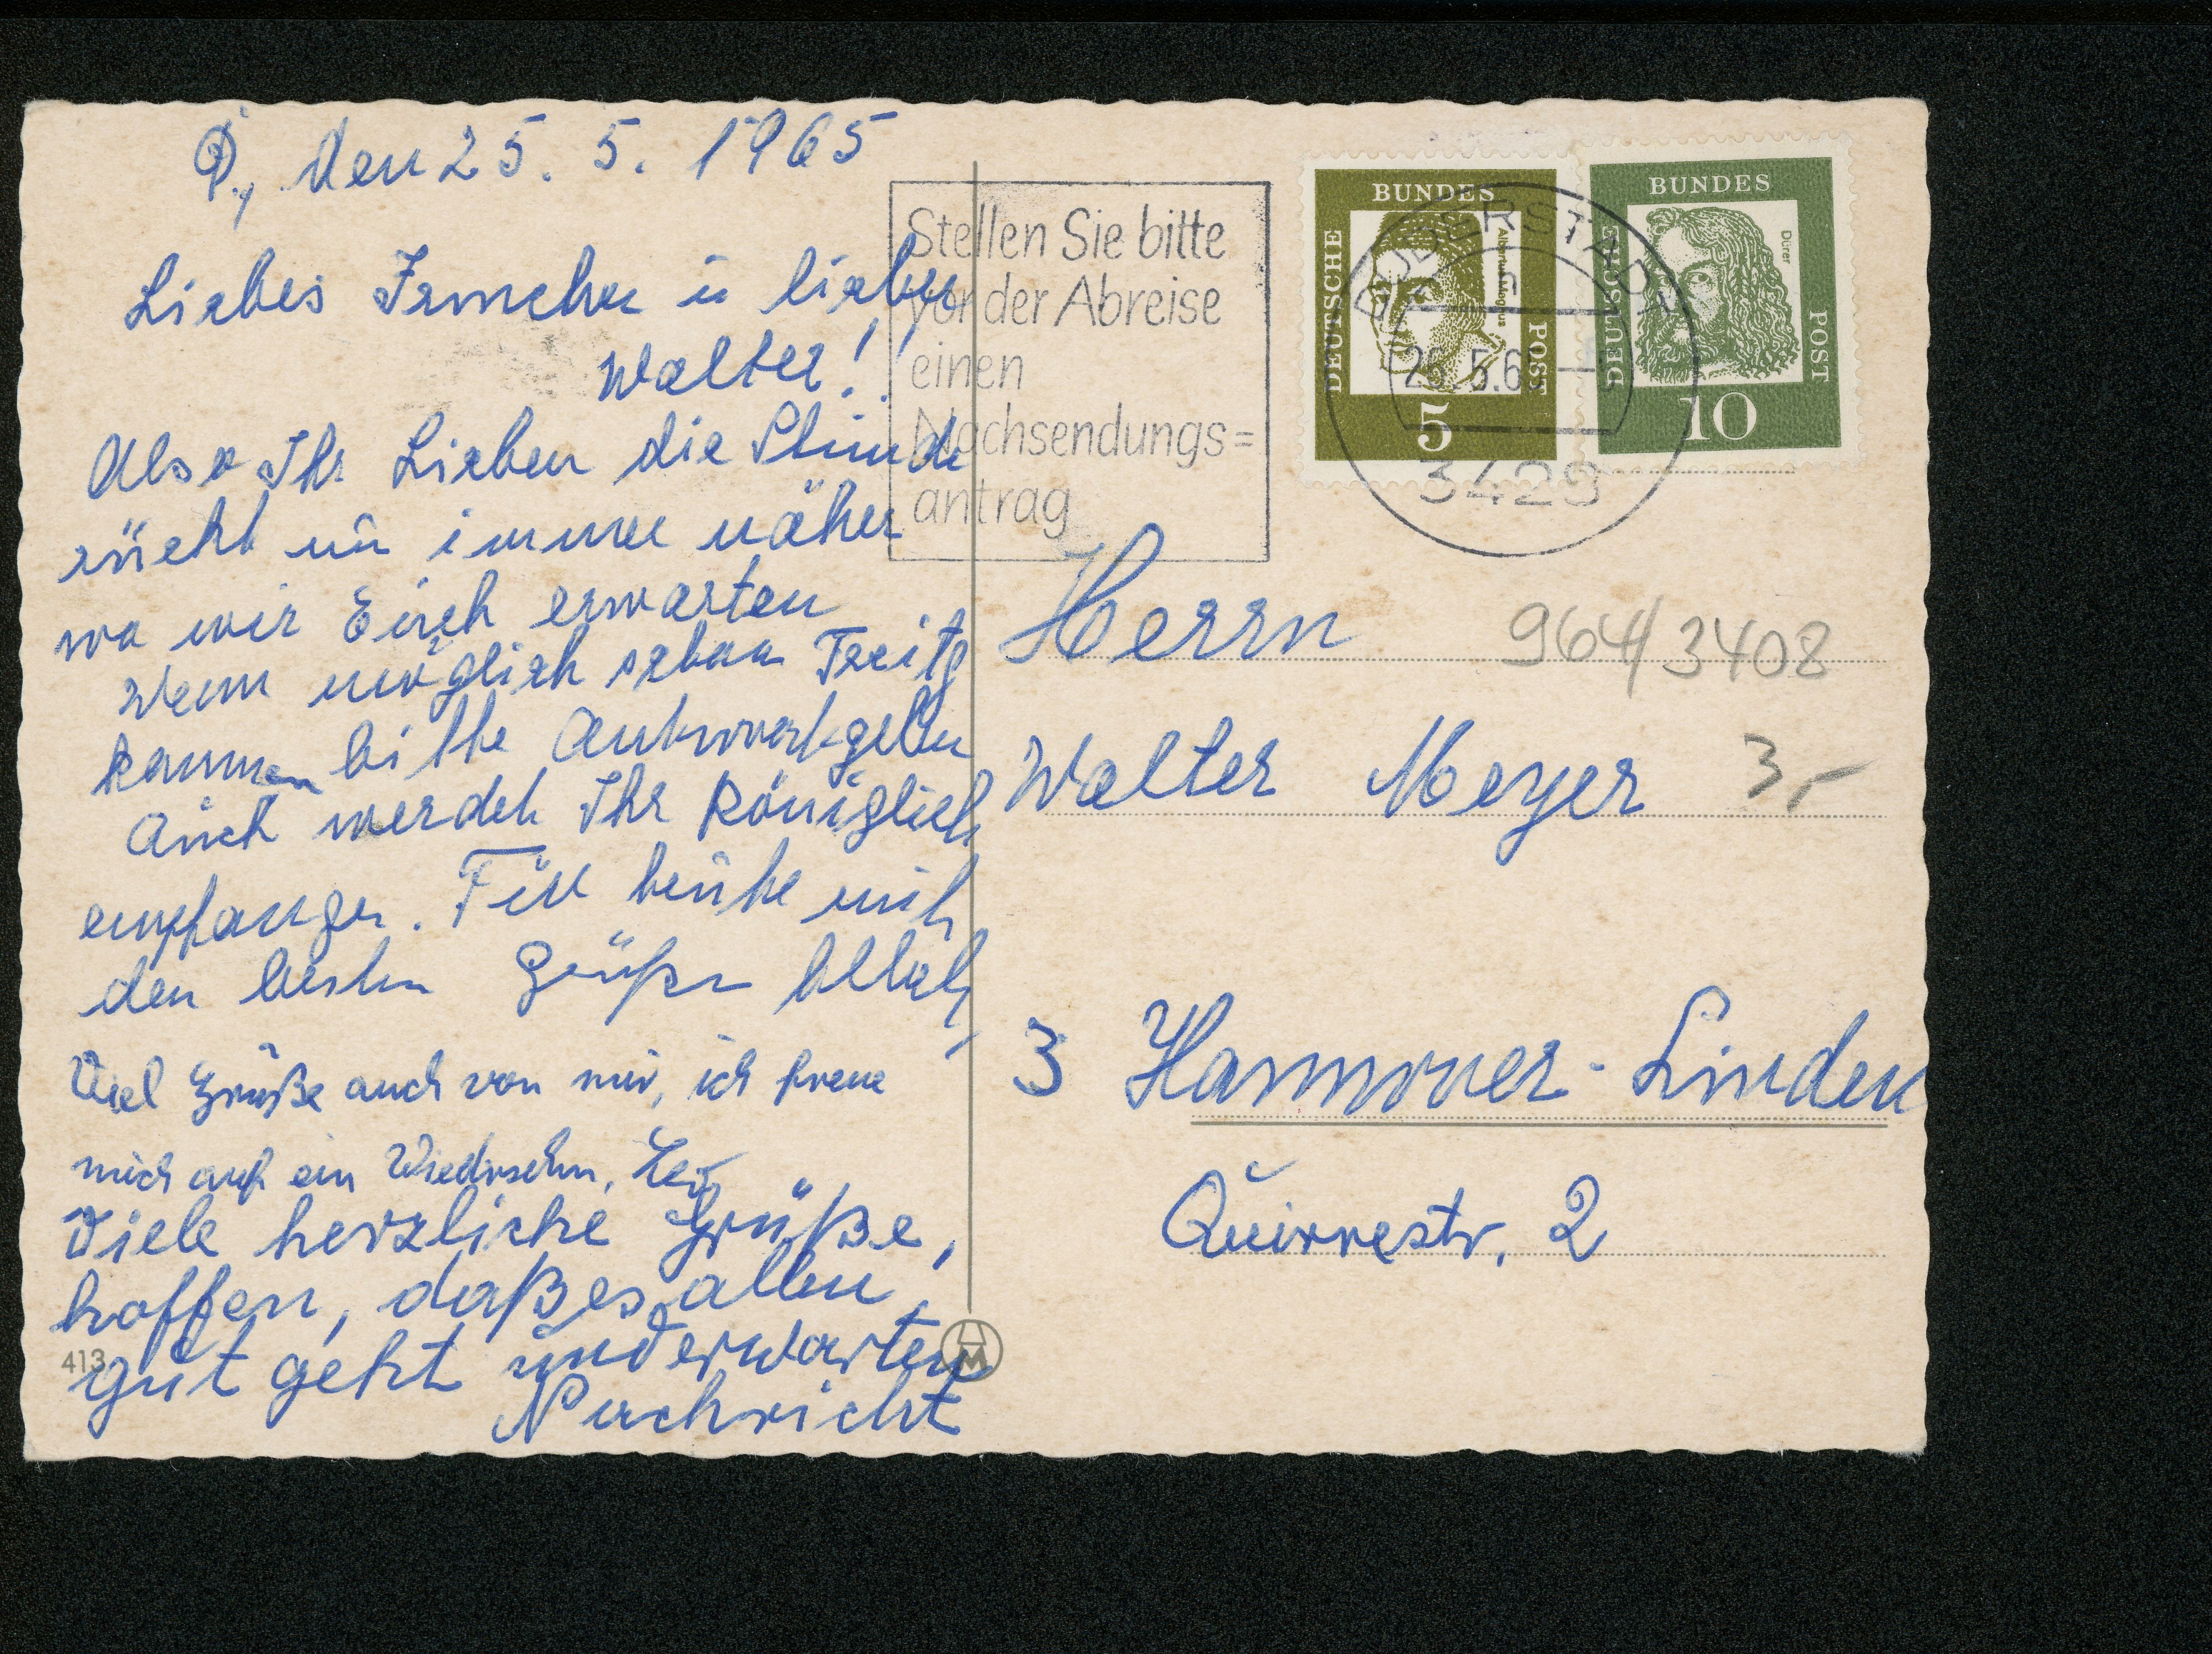 D., den 25. 5. 1965
Liebes Irmchen u lieber
Walter!!
Also Ihr Lieben die Stunde
rückt nu immer näher
wo wir Euch erwarten
wenn möglich schon Freitg
kommen bitte Antwort geben
Auch werdet Ihr königlich
empfangen. Für heute mit
den besten Grüße
Viel Grüße auch von mir, ich freue
mich auf ein Wiedersehn,
Viele herzliche Grüße,
hoffen, daß es allen
gut geht und erwarten
Nachricht
413
Stellen Sie bitte
vor der Abreise
einen
Nachsendungs=
antrag
DEUTSCHE BUNDES POST
Albertus Magnus
5
DEUTSCHE BUNDES POST
Dürer
10
DUDERSTADT
25.5.65
3429
Herrn
964/3408
Walter Meyer
3,-
3 Hannover-Linden
Quirrestr. 2